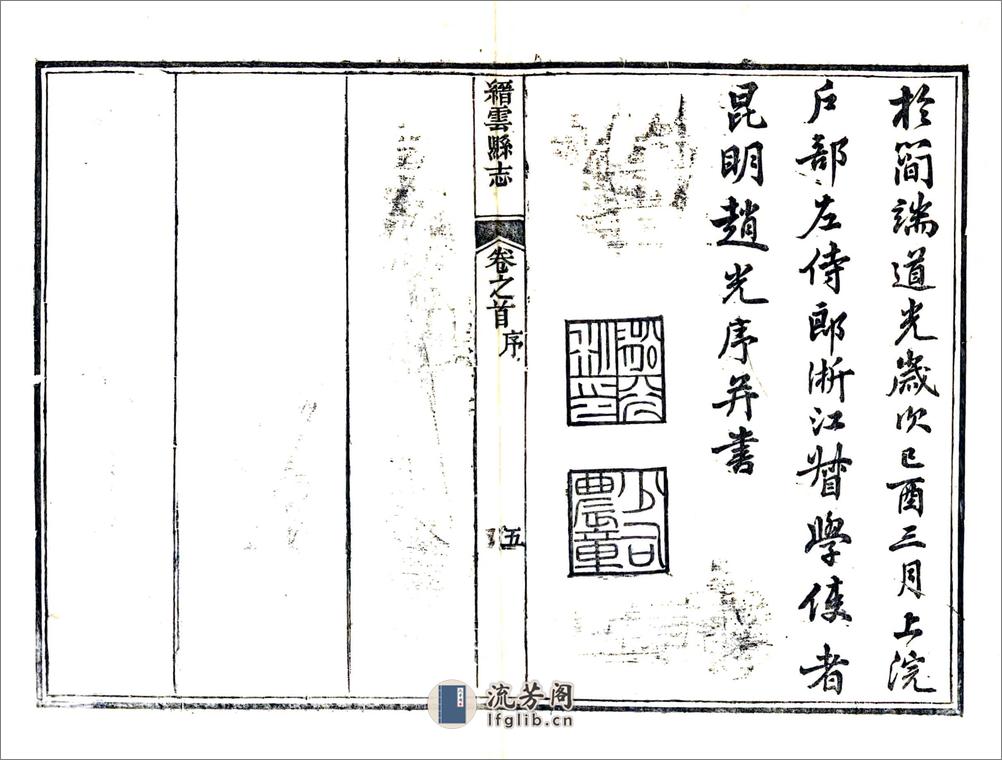 於簡端道光歲次己酉三月上浣
戶部左侍郎浙江督學使者
昆明趙光序并書
趙光私印
少司農章
縉雲縣志
卷之首
序
五
流芳阁
lfglib.cn